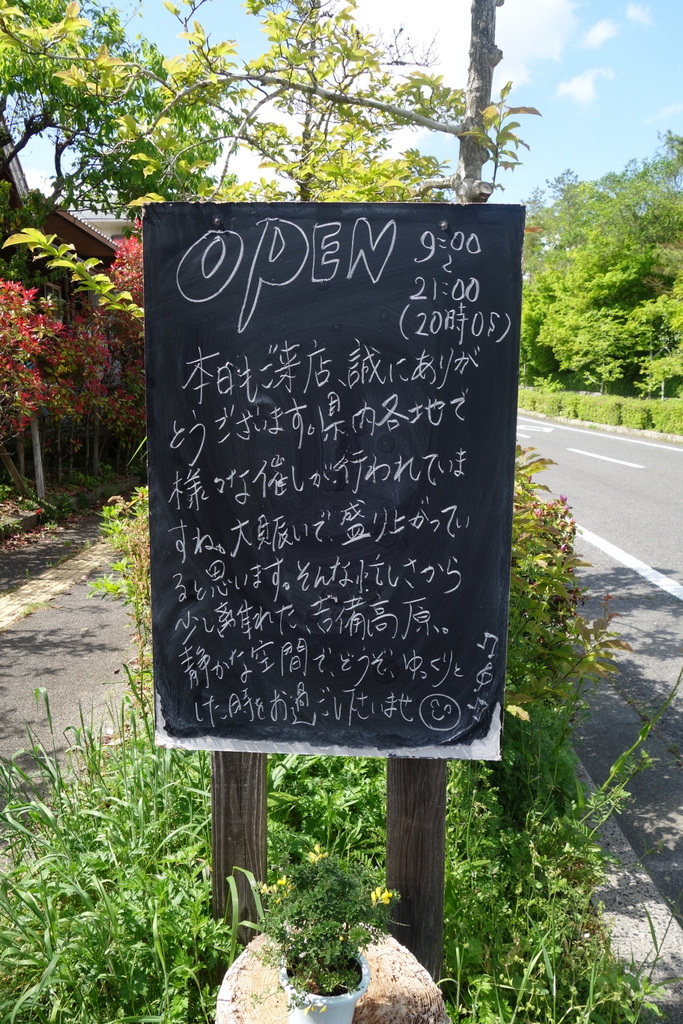 OPEN
9:00
~
21:00
(20時OS)
本日もご来店、誠にありが
とうございます。県内各地で
様々な催しが行われていま
すね。大賑いで盛り上がってい
ると思います。そんな忙しさから
少し離れた、吉備高原。
静かな空間で、どうぞ、ゆっくりと
した時をお過ごし下さいませ